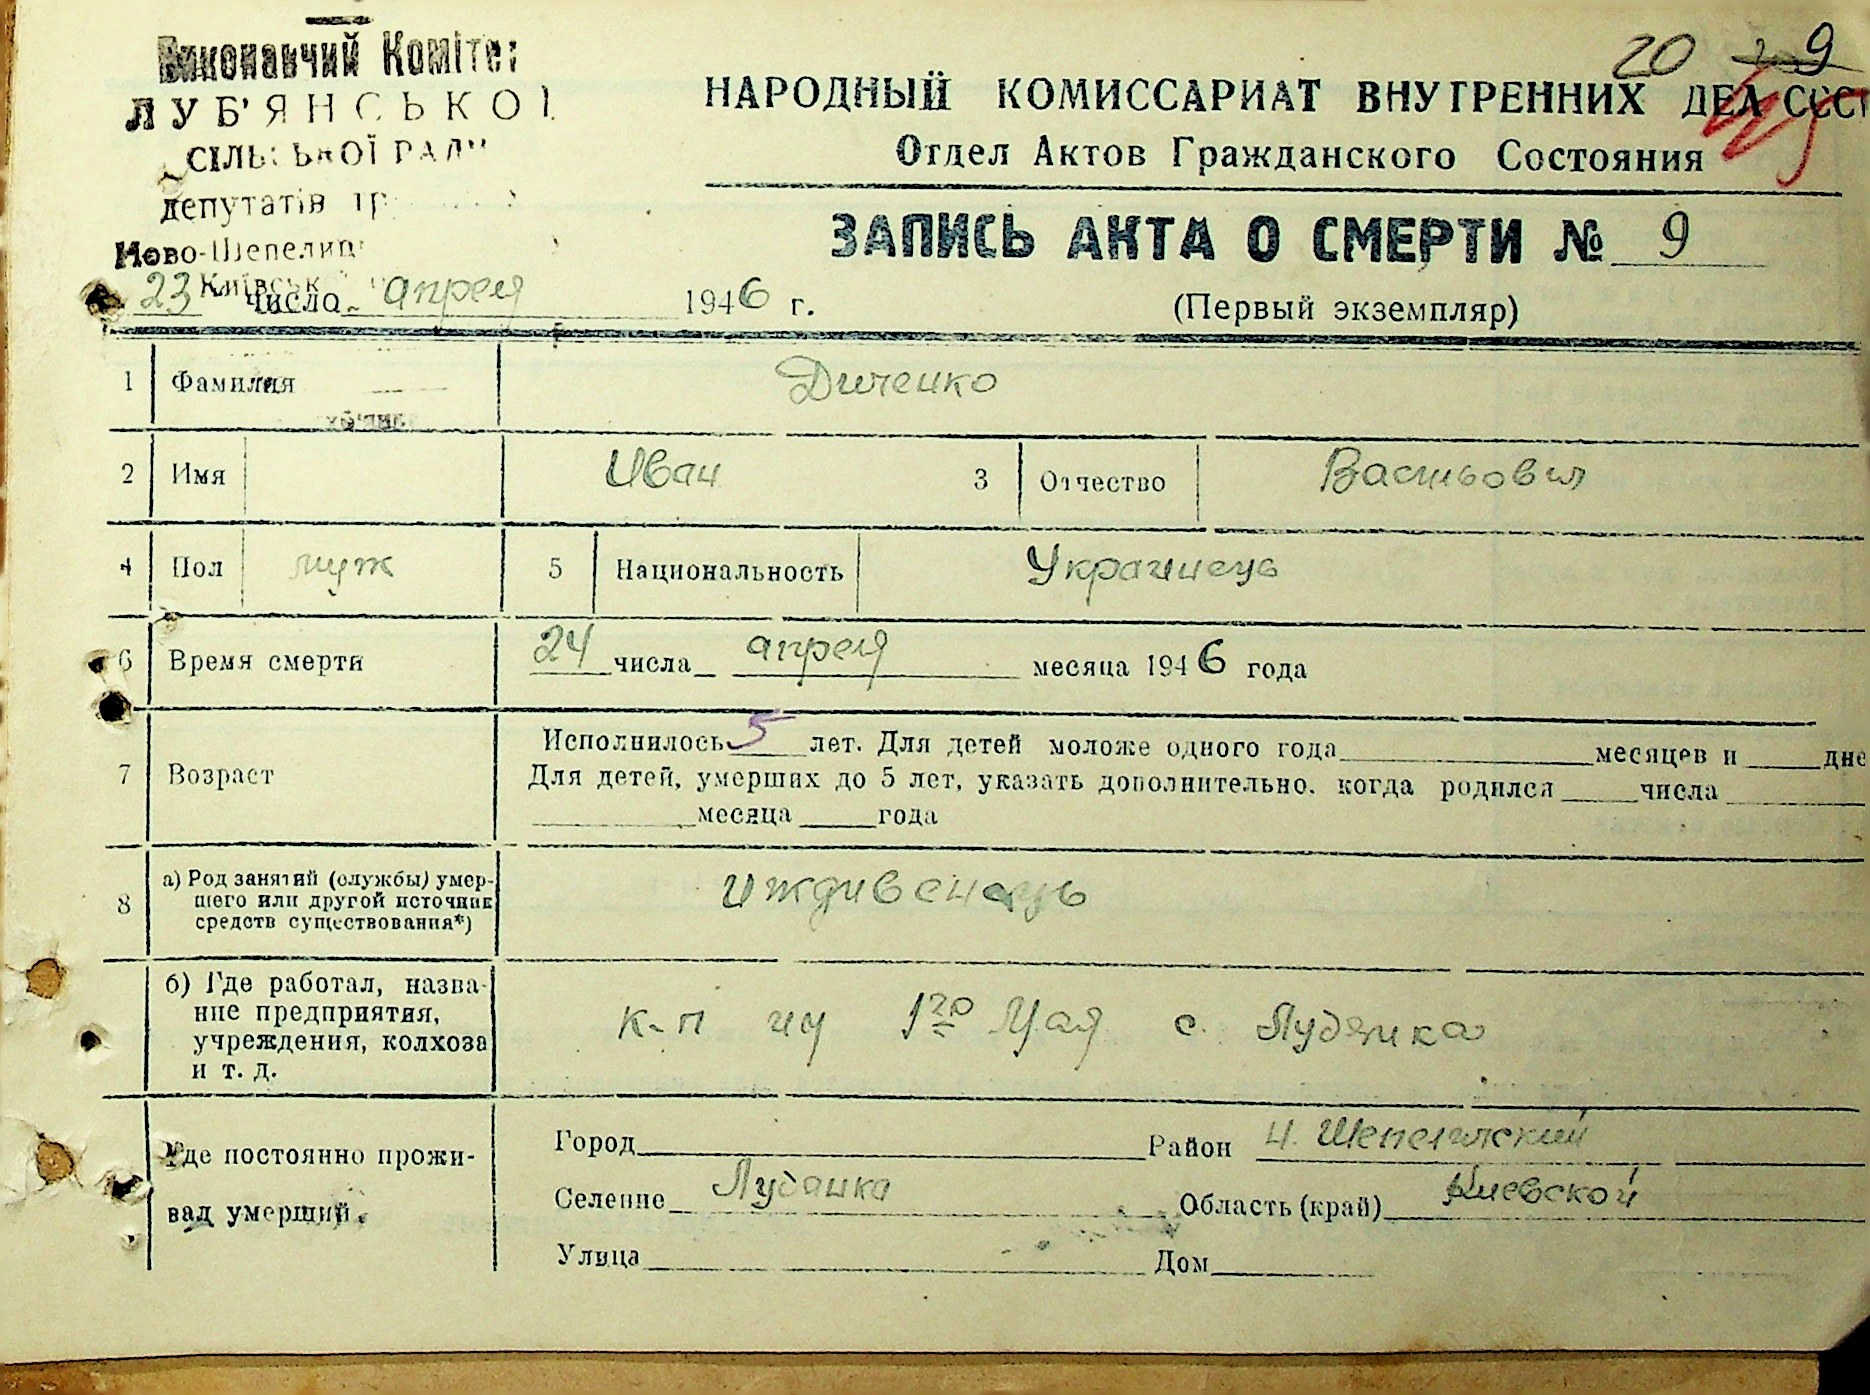 20 9
Виконавчий Комітет
ЛУБ'ЯНСЬКОЇ
СІЛЬСЬКОЇ РАДИ
депутатів
Ново-Шепелиц
Київськ
НАРОДНЫЙ КОМИССАРИАТ ВНУТРЕННИХ ДЕЛ СССР
Отдел Актов Гражданского Состояния
ЗАПИСЬ АКТА О СМЕРТИ № 9
23 число апреля 1946 г.
(Первый экземпляр)
1 Фамилия Диченко
2 Имя Иван 3 Отчество
4 Пол муж 5 Национальность Украинець
6 Время смерти 24 числа апреля месяца 1946 года
7 Возраст Исполнилось 5 лет. Для детей моложе одного года месяцев и дне
Для детей, умерших до 5 лет, указать дополнительно, когда родился числа
месяца года
8 а) Род занятий (службы) умер-
шего или другой источник
средств существования*)
иждивенець
б) Где работал, назва-
ние предприятия,
учреждения, колхоза
и т. д.
к-п им 1го Мая с. Лубянка
Где постоянно прожи-
вал умерший.
Город Район Н. Шепеличский
Селение Лубянка Область (край) Киевской
Улица Дом